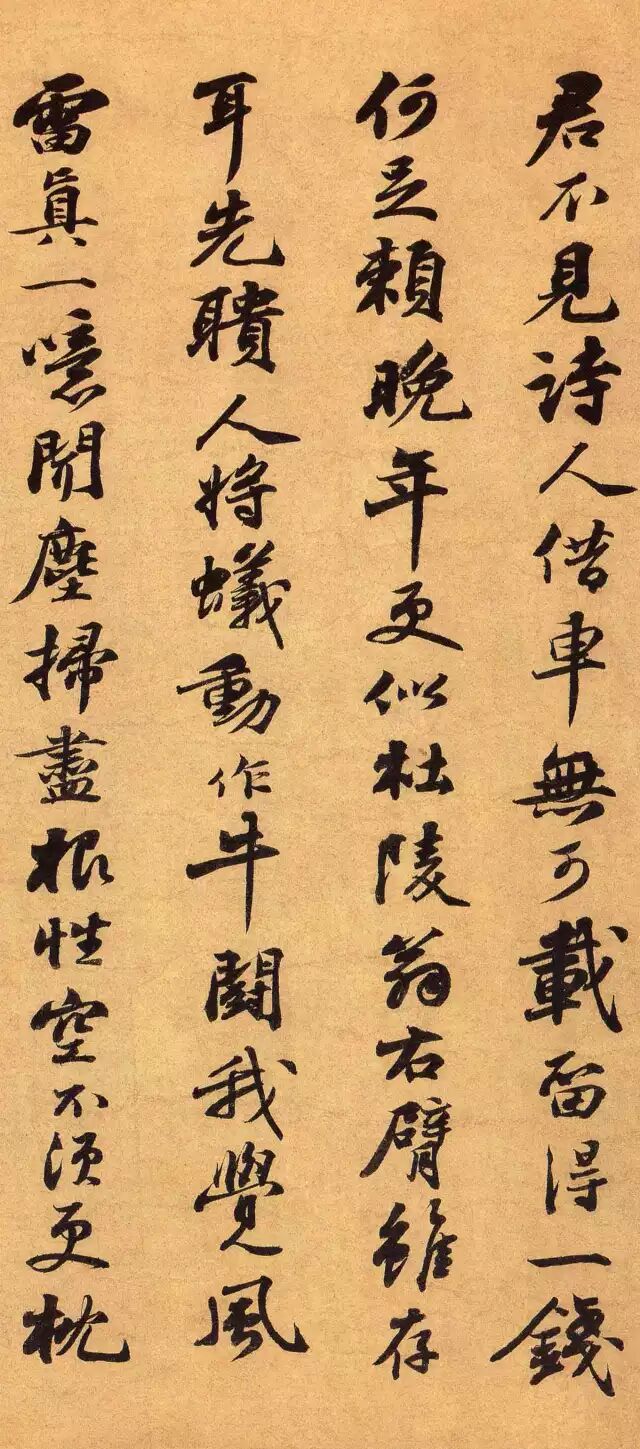 君不見詩人借車無可載留得一錢
何足賴晚年更似杜陵翁右臂雖存
耳先聵人將蟻動作牛鬪我覺風
雷真一噫聞塵掃盡根性空不須更枕